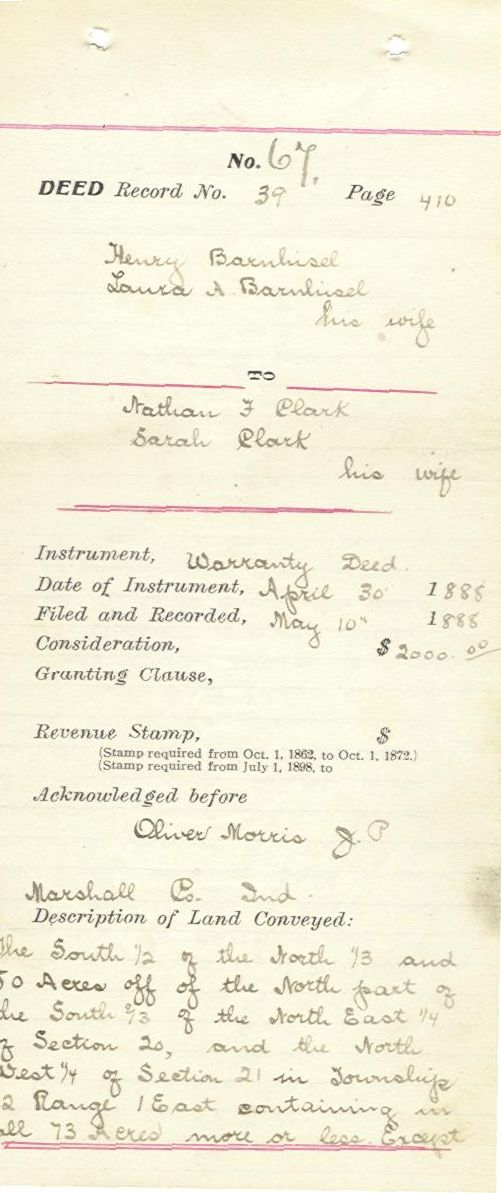 No. 67.
DEED Record No. 39 Page 410
Henry Barnhisel
Laura A. Barnhisel
his wife
TO
Nathan F Clark
Sarah Clark
his wife
Instrument, Warranty Deed.
Date of Instrument, April 30 1888
Filed and Recorded, May 10" 1888
Consideration, $ 2000.00
Granting Clause,
Revenue Stamp, $
(Stamp required from Oct. 1, 1862, to Oct. 1, 1872.)
(Stamp required from July 1, 1898, to
Acknowledged before
Oliver Morris J. P
Marshall Co. Ind.
Description of Land Conveyed:
The South 1/2 of the North 1/3 and
50 Acres off of the North part of
the South 2/3 of the North East 1/4
of Section 20, and the North
West 1/4 of Section 21 in Township
2 Range 1 East containing in
all 73 Acres more or less. Except